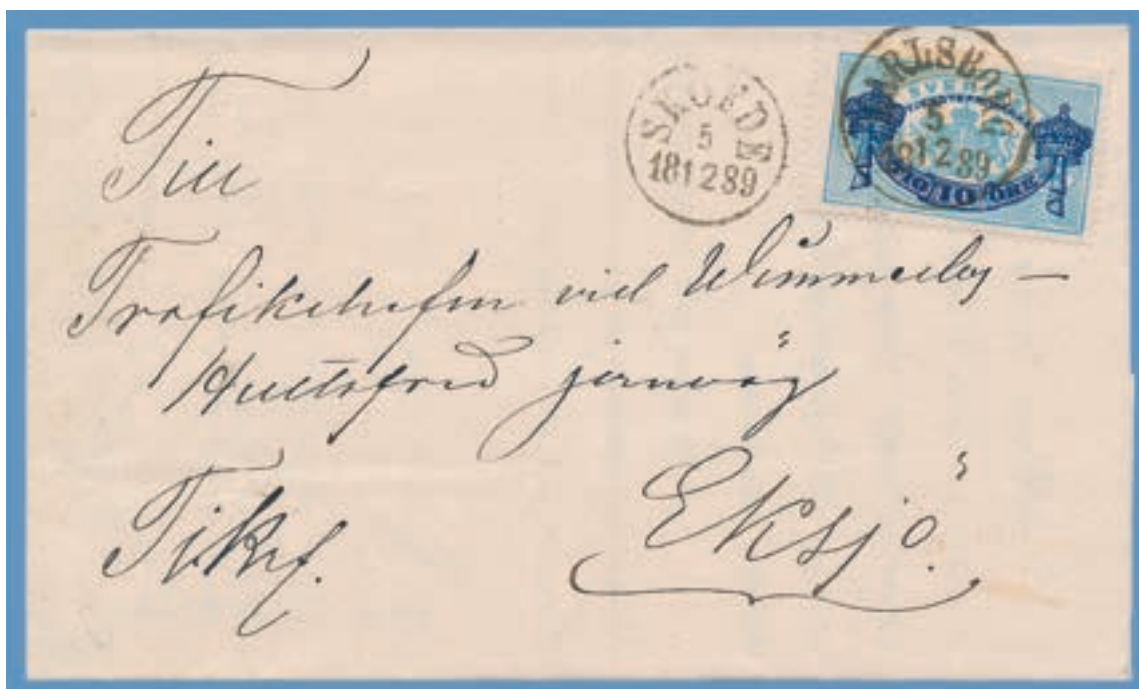 SKÖFDE
5
18 12 89
KARLSBORG
5
18 12 89
SVERIGE
TIO 10 ÖRE
Till
Trafikchefen vid Wimmerby –
Hultsfred jernväg
Eksjö.